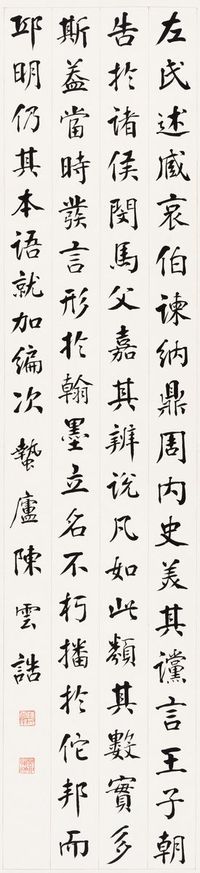 左氏述臧哀伯諫納鼎周内史美其讜言王子朝
告於諸侯閔馬父嘉其辨說凡如此類其數實多
斯葢當時發言形於翰墨立名不朽播於佗邦而
邱明仍其本語就加編次 蟄廬陳雲誥